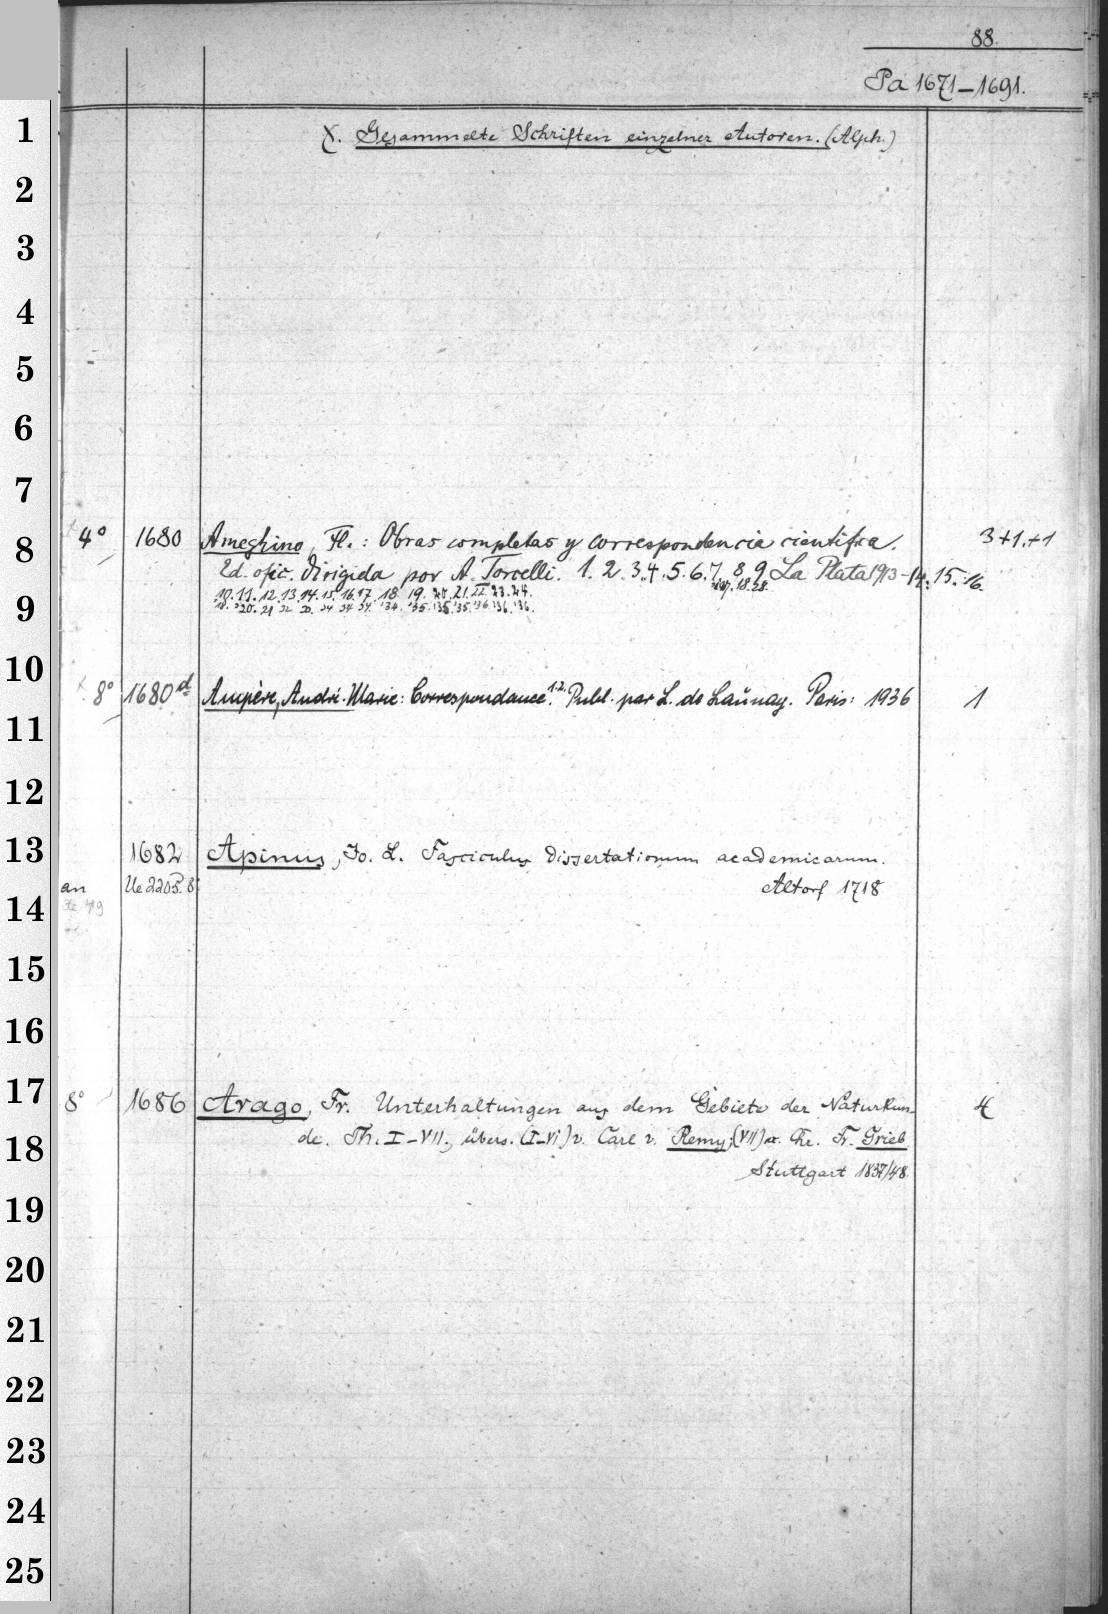 88.
Pa 1671-1691.
1
X. Gesammelte Schriften einzelner Autoren. (Alph.)
2
3
4
5
6
7
8
4° 1680 Ameghino, Fl.: Obras completas y correspondencia cientifca. 3+1.+1
Ed. ofic. dirigida por A. Torcelli. 1. 2. 3. 4. 5. 6. 7. 8. 9. La Plata 1913-14. 15. 16.
9
10. 11. 12. 13. 14. 15. 16. 17. 18. 19. 20. 21. 22. 23. 24.
10
8° 1680d Ampère, André-Marie: Correspondance 1.2. Publ. par L. de Launay. Paris: 1936 1
11
12
13
1682 Apinus, Jo. L. Fasciculus dissertationum academicarum.
an Ue 2205. 8° Altorf 1718
14
15
16
17
8° 1686 Arago, Fr. Unterhaltungen aus dem Gebiete der Naturkun- 4
18
de. Th. I-VII., übers. (I-VI) v. Carl v. Remy; (VII) Fr. Grieb
Stuttgart 1837/48.
19
20
21
22
23
24
25